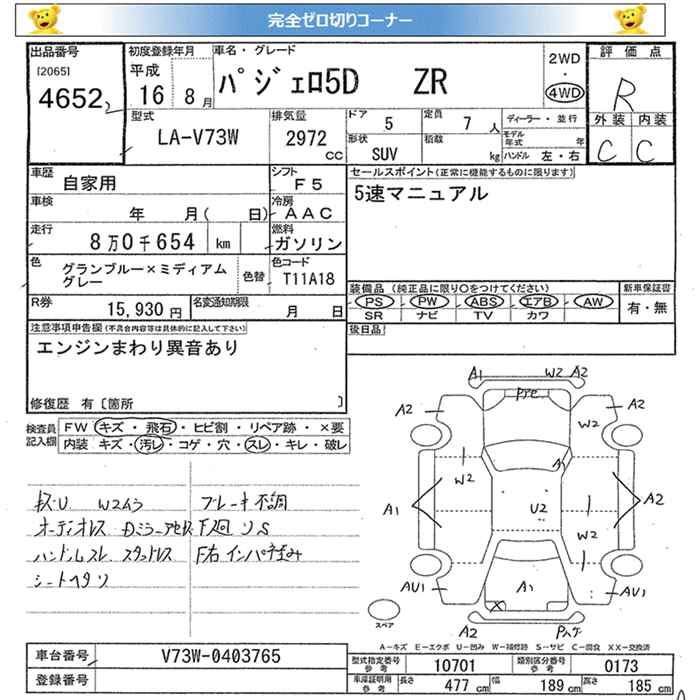 完全ゼロ切りコーナー
出品番号
[2065]
4652
初度登録年月
平成
16 8月
車名・グレード
パジェロ5D ZR
2WD
・
4WD
評価点
R
外装 内装
C C
型式
LA-V73W
排気量
2972
cc
ドア
5
定員
7 人
形状
SUV
積載
kg
ディーラー・並行
モデル年式 年
ハンドル 左・右
車歴
自家用
シフト
F5
車検
年 月( 日)
冷房
AAC
走行
8万0千654 km
燃料
ガソリン
色
グランブルー×ミディアム
グレー
色替
色コード
T11A18
R券
15,930 円
名変通知期限
月 日
セールスポイント(正常に機能するものに限ります)
5速マニュアル
装備品 (純正品に限り○をつけてください)
PS PW ABS エアB AW
SR ナビ TV カワ
新車保証書
有・無
後日品
注意事項申告欄(不具合内容等は具体的に記入して下さい)
エンジンまわり異音あり
修復歴 有〔箇所 〕
検査員
記入欄
FW キズ・飛石・ヒビ割・リペア跡・×要
内装 キズ・汚レ・コゲ・穴・スレ・キレ・破レ
ブレーキ不調
オーディオレス
ハンドルスレ スタッドレス
シートヘタリ
A1 W2 A2
A2 A2
W2
W2 A1
A2 U2 A2
W2
AU1 A1 AU1
X
A2
スペア
A-キズ E-エクボ U-凹み W-補修跡 S-サビ C-腐食 XX-交換済
車台番号
V73W-0403765
登録番号
型式指定番号
参考
10701
類別区分番号
参考
0173
車庫証明用
参考
長さ 477 cm
幅 189 cm
高さ 185 cm